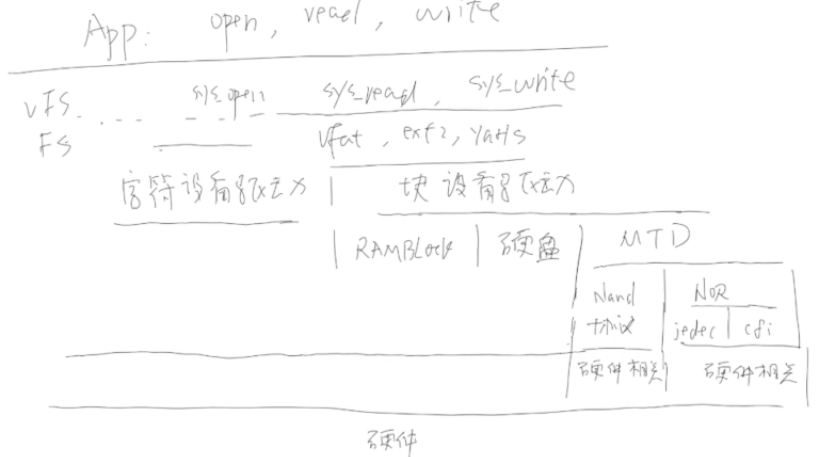 App: open, read, write
VFS.... sys_open sys_read, sys_write
FS vfat, ext2, yaffs
字符设备驱动 块设备驱动
RAMBlock 硬盘 MTD
Nand NOR
协议 jedec cfi
硬件相关 硬件相关
硬件